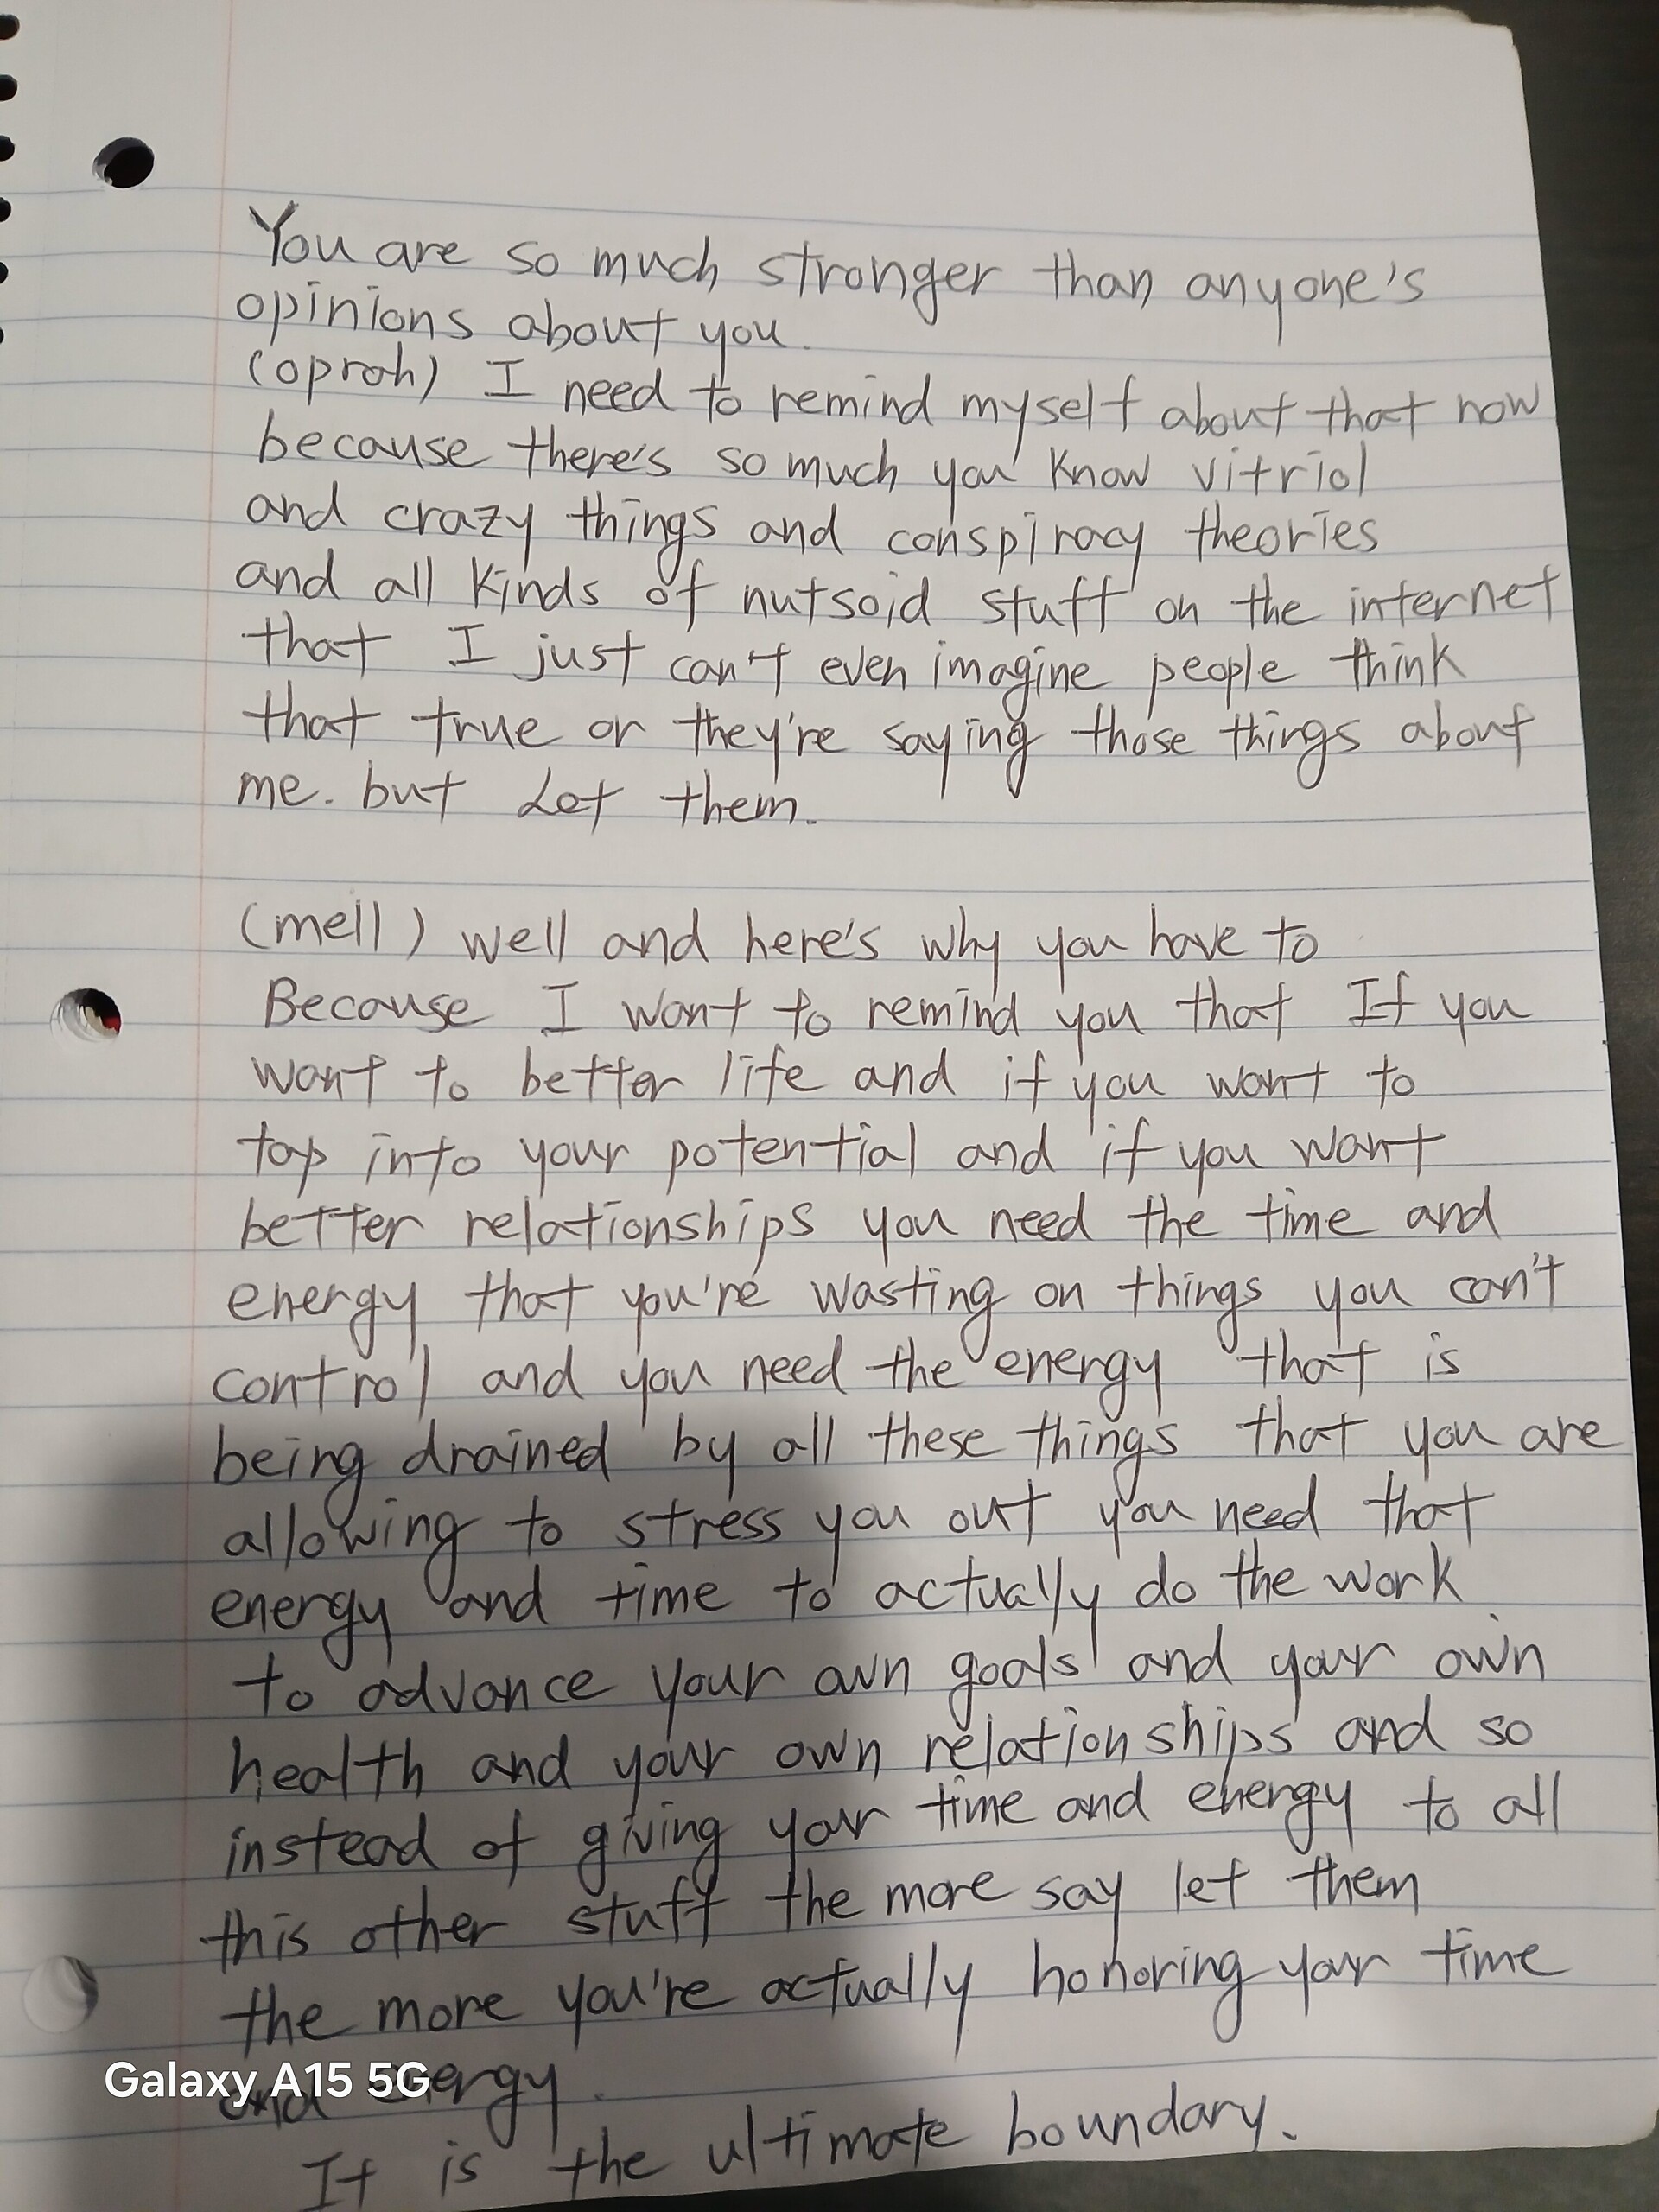 You are so much stronger than anyone's
opinions about you.
(oprah) I need to remind myself about that now
because there's so much you know vitriol
and crazy things and conspiracy theories
and all kinds of nutsoid stuff on the internet
that I just can't even imagine people think
that true or they're saying those things about
me. but Let them.
(mell) well and here's why you have to
Because I want to remind you that If you
want to better life and if you want to
tap into your potential and if you want
better relationships you need the time and
energy that you're wasting on things you can't
control and you need the energy that is
being drained by all these things that you are
allowing to stress you out you need that
energy and time to actually do the work
to advance your own goals and your own
health and your own relationships and so
instead of giving your time and energy to all
this other stuff the more say let them
the more you're actually honoring your time
and energy.
Galaxy A15 5G
It is the ultimate boundary.